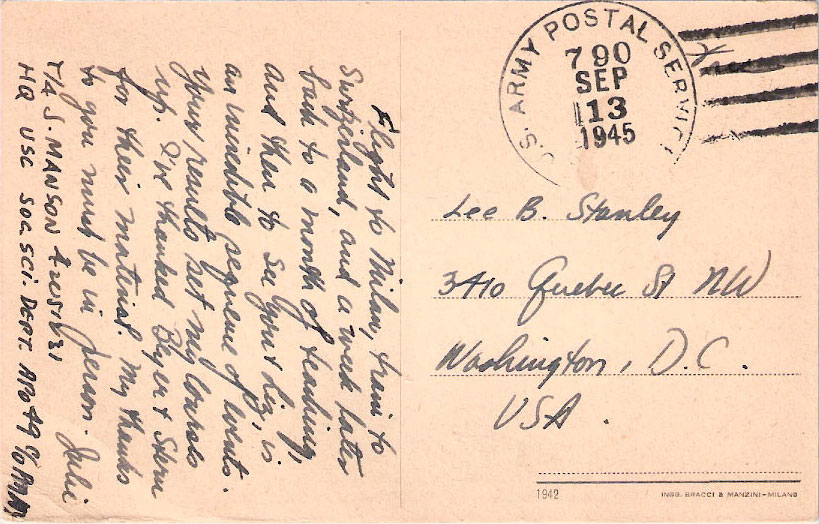 Flight to Milan, train to
Switzerland, and a week later
back to a month of teaching,
and then to see you & Liz, is
an incredible sequence of events.
Your results set my controls
up. I've thanked Byer & Stern
for their material. My thanks
to you must be in person. Julie
T/4 J. MANSON
HQ USC SOC. SCI. DEPT. APO 49 c/o PM, NY
U.S. ARMY POSTAL SERVICE
790
SEP
13
1945
Lee B. Stanley
3410 Quebec St NW
Washington, D.C.
USA.
1942
ING. BRACCI & MANZINI-MILANO